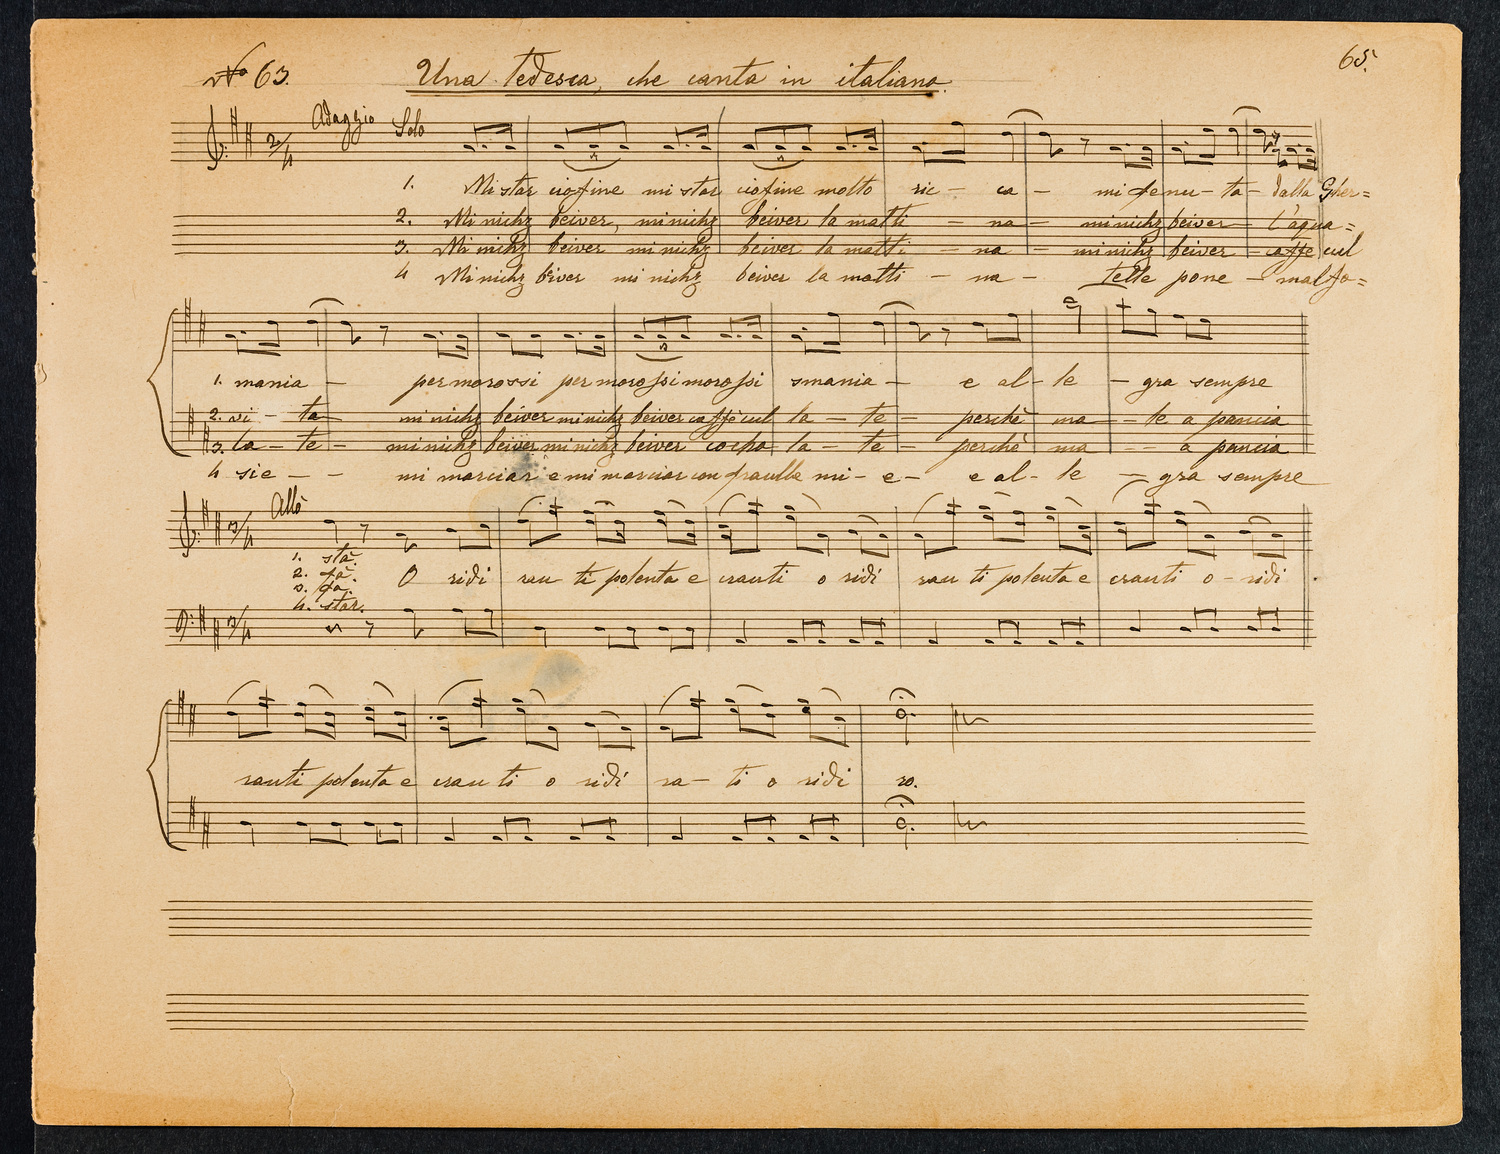 No 63. Una tedesca, che canta in italiano. 65.
Adaggio Solo
1. Mi star ciofine mi star ciofine molto ric - ca - mi fenu - ta - dalla Gher=
2. Mi nichz beiver, mi nichz beiver la matti - na - mi nichz beiver - l'aqua=
3. Mi nichz beiver mi nichz beiver la matti - na - mi nichz beiver - caffe cul
4 Mi nichz beiver mi nichz beiver la matti - na - telle pone - mal fo=
1. mania - per morossi per morossi morossi smania - e al - le - gra sempre
2. vi - ta mi nichz beiver mi nichz beiver caffè cul la - te - perchè ma - le a pancia
3. la - te - mi nichz beiver mi nichz beiver cocho la - te - perchè ma - - a pancia
4 sie - - mi marciar e mi marciar con fraulle mi - e - e al - le - gra sempre
Allo
1. sta.
2. fà.
3. fa.
4. star.
O ridi rau ti polenta e crauti o ridi rau ti polenta e crauti o - ridi
rauti polenta e crau ti o ridi ra - ti o ridi ro.